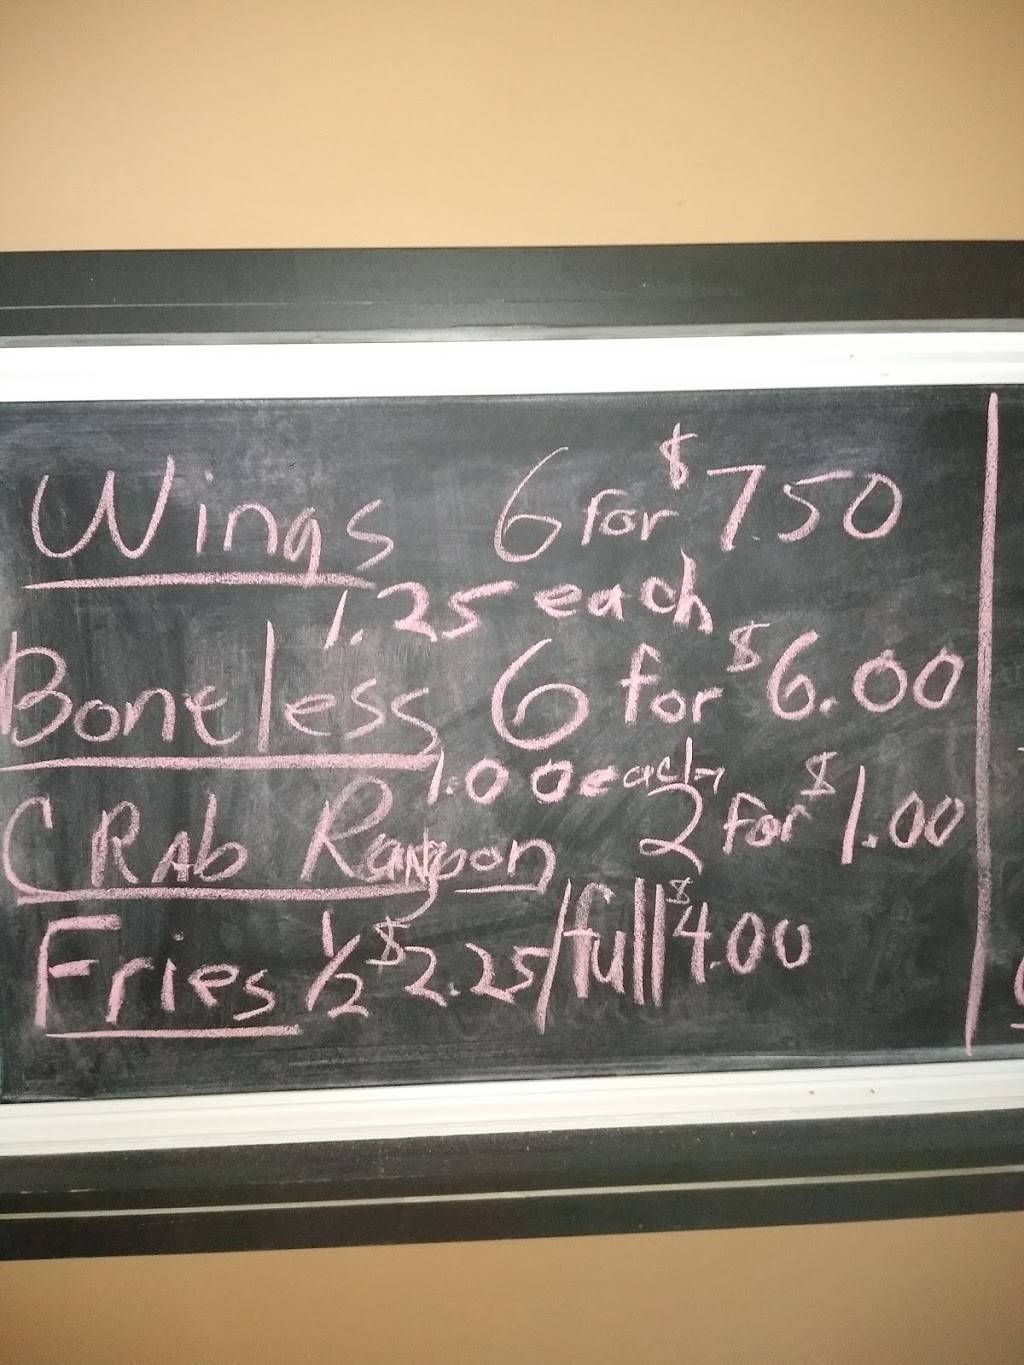 Wings 6 for $7.50
1.25 each
Boneless 6 for $6.00
1.00 each
CRAb Rangoon 2 for $1.00
Fries 1/2 $2.25/full $4.00